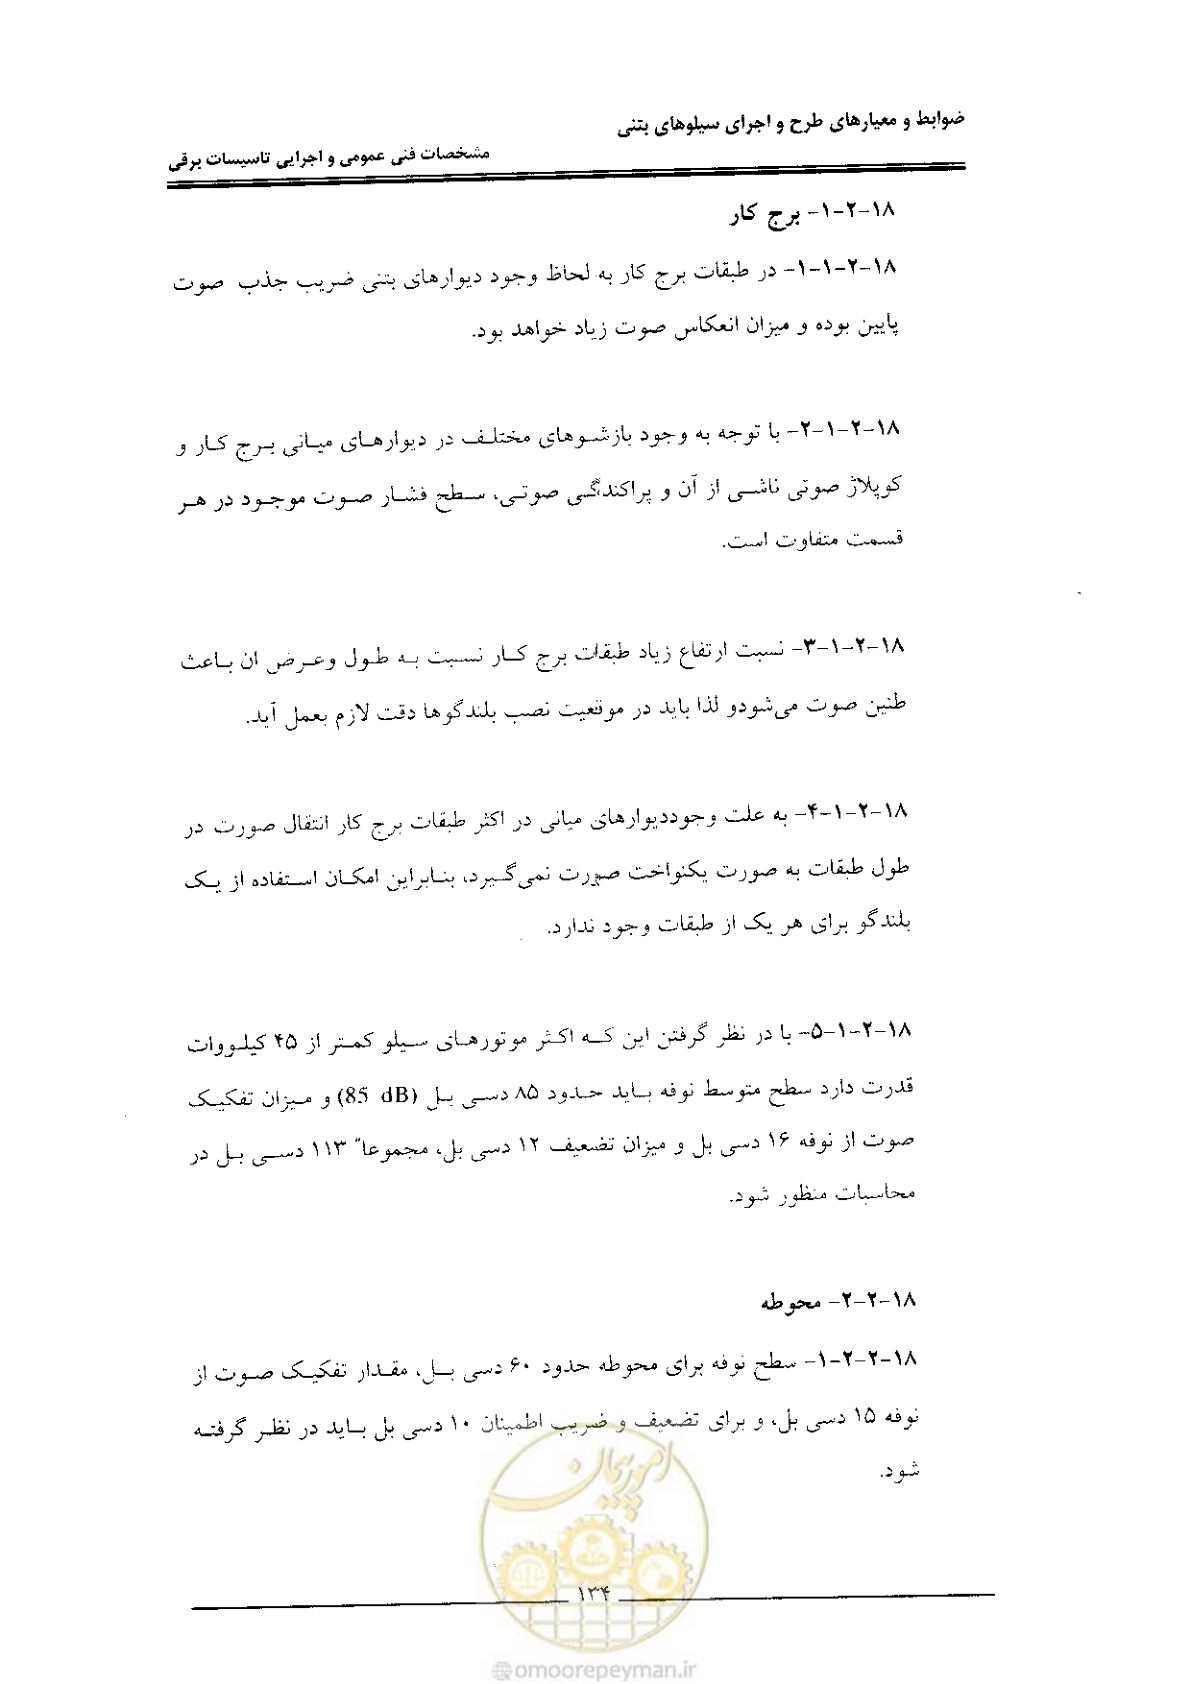 ضوابط و معیارهای طرح و اجرای سیلوهای بتنی
مشخصات فنی عمومی و اجرایی تاسیسات برقی
۱۸-۲-۱- برج کار
۱۸-۲-۱-۱- در طبقات برج کار به لحاظ وجود دیوارهای بتنی ضریب جذب صوت
پایین بوده و میزان انعکاس صوت زیاد خواهد بود.
۱۸-۲-۱-۲- با توجه به وجود بازشوهای مختلف در دیوارهای میانی برج کار و
کوپلاژ صوتی ناشی از آن و پراکندگی صوتی، سطح فشار صوت موجود در هر
قسمت متفاوت است.
۱۸-۲-۱-۳- نسبت ارتفاع زیاد طبقات برج کار نسبت به طول وعرض ان باعث
طنین صوت می‌شودو لذا باید در موقعیت نصب بلندگوها دقت لازم بعمل آید.
۱۸-۲-۱-۴- به علت وجوددیوارهای میانی در اکثر طبقات برج کار انتقال صورت در
طول طبقات به صورت یکنواخت صورت نمی‌گیرد، بنابراین امکان استفاده از یک
بلندگو برای هر یک از طبقات وجود ندارد.
۱۸-۲-۱-۵- با در نظر گرفتن این که اکثر موتورهای سیلو کمتر از ۴۵ کیلووات
قدرت دارد سطح متوسط نوفه باید حدود ۸۵ دسی بل (85 dB) و میزان تفکیک
صوت از نوفه ۱۶ دسی بل و میزان تضعیف ۱۲ دسی بل، مجموعاً ۱۱۳ دسی بل در
محاسبات منظور شود.
۱۸-۲-۲- محوطه
۱۸-۲-۲-۱- سطح نوفه برای محوطه حدود ۶۰ دسی بل، مقدار تفکیک صوت از
نوفه ۱۵ دسی بل، و برای تضعیف و ضریب اطمینان ۱۰ دسی بل باید در نظر گرفته
شود.
امور پیمان
۱۳۴
@omoorepeyman.ir